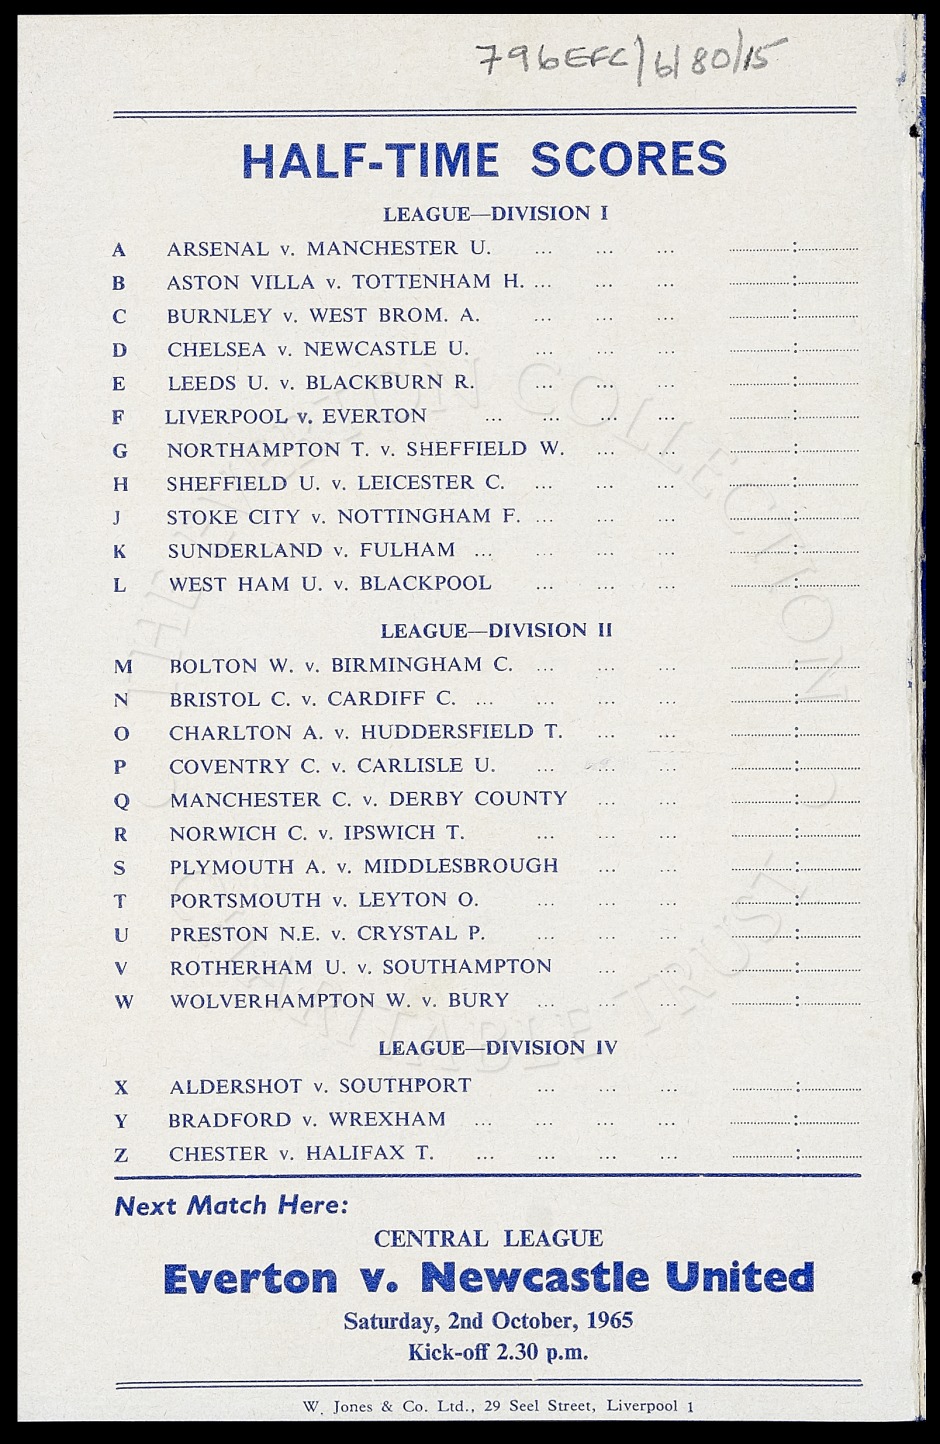 796EFC/6/80/15
HALF-TIME SCORES
LEAGUE—DIVISION I
A ARSENAL v. MANCHESTER U. ... ... ... ..............:..............
B ASTON VILLA v. TOTTENHAM H. ... ... ... ..............:..............
C BURNLEY v. WEST BROM. A. ... ... ... ..............:..............
D CHELSEA v. NEWCASTLE U. ... ... ... ..............:..............
E LEEDS U. v. BLACKBURN R. ... ... ... ..............:..............
F LIVERPOOL v. EVERTON ... ... ... ... ..............:..............
G NORTHAMPTON T. v. SHEFFIELD W. ... ... ..............:..............
H SHEFFIELD U. v. LEICESTER C. ... ... ... ..............:..............
J STOKE CITY v. NOTTINGHAM F. ... ... ... ..............:..............
K SUNDERLAND v. FULHAM ... ... ... ... ..............:..............
L WEST HAM U. v. BLACKPOOL ... ... ... ..............:..............
LEAGUE—DIVISION II
M BOLTON W. v. BIRMINGHAM C. ... ... ... ..............:..............
N BRISTOL C. v. CARDIFF C. ... ... ... ... ..............:..............
O CHARLTON A. v. HUDDERSFIELD T. ... ... ..............:..............
P COVENTRY C. v. CARLISLE U. ... ... ... ..............:..............
Q MANCHESTER C. v. DERBY COUNTY ... ... ..............:..............
R NORWICH C. v. IPSWICH T. ... ... ... ..............:..............
S PLYMOUTH A. v. MIDDLESBROUGH ... ... ..............:..............
T PORTSMOUTH v. LEYTON O. ... ... ... ..............:..............
U PRESTON N.E. v. CRYSTAL P. ... ... ... ..............:..............
V ROTHERHAM U. v. SOUTHAMPTON ... ... ..............:..............
W WOLVERHAMPTON W. v. BURY ... ... ... ..............:..............
LEAGUE—DIVISION IV
X ALDERSHOT v. SOUTHPORT ... ... ... ..............:..............
Y BRADFORD v. WREXHAM ... ... ... ... ..............:..............
Z CHESTER v. HALIFAX T. ... ... ... ... ..............:..............
Next Match Here:
CENTRAL LEAGUE
Everton v. Newcastle United
Saturday, 2nd October, 1965
Kick-off 2.30 p.m.
W. Jones & Co. Ltd., 29 Seel Street, Liverpool 1
THE EVERTON COLLECTION
CHARITABLE TRUST